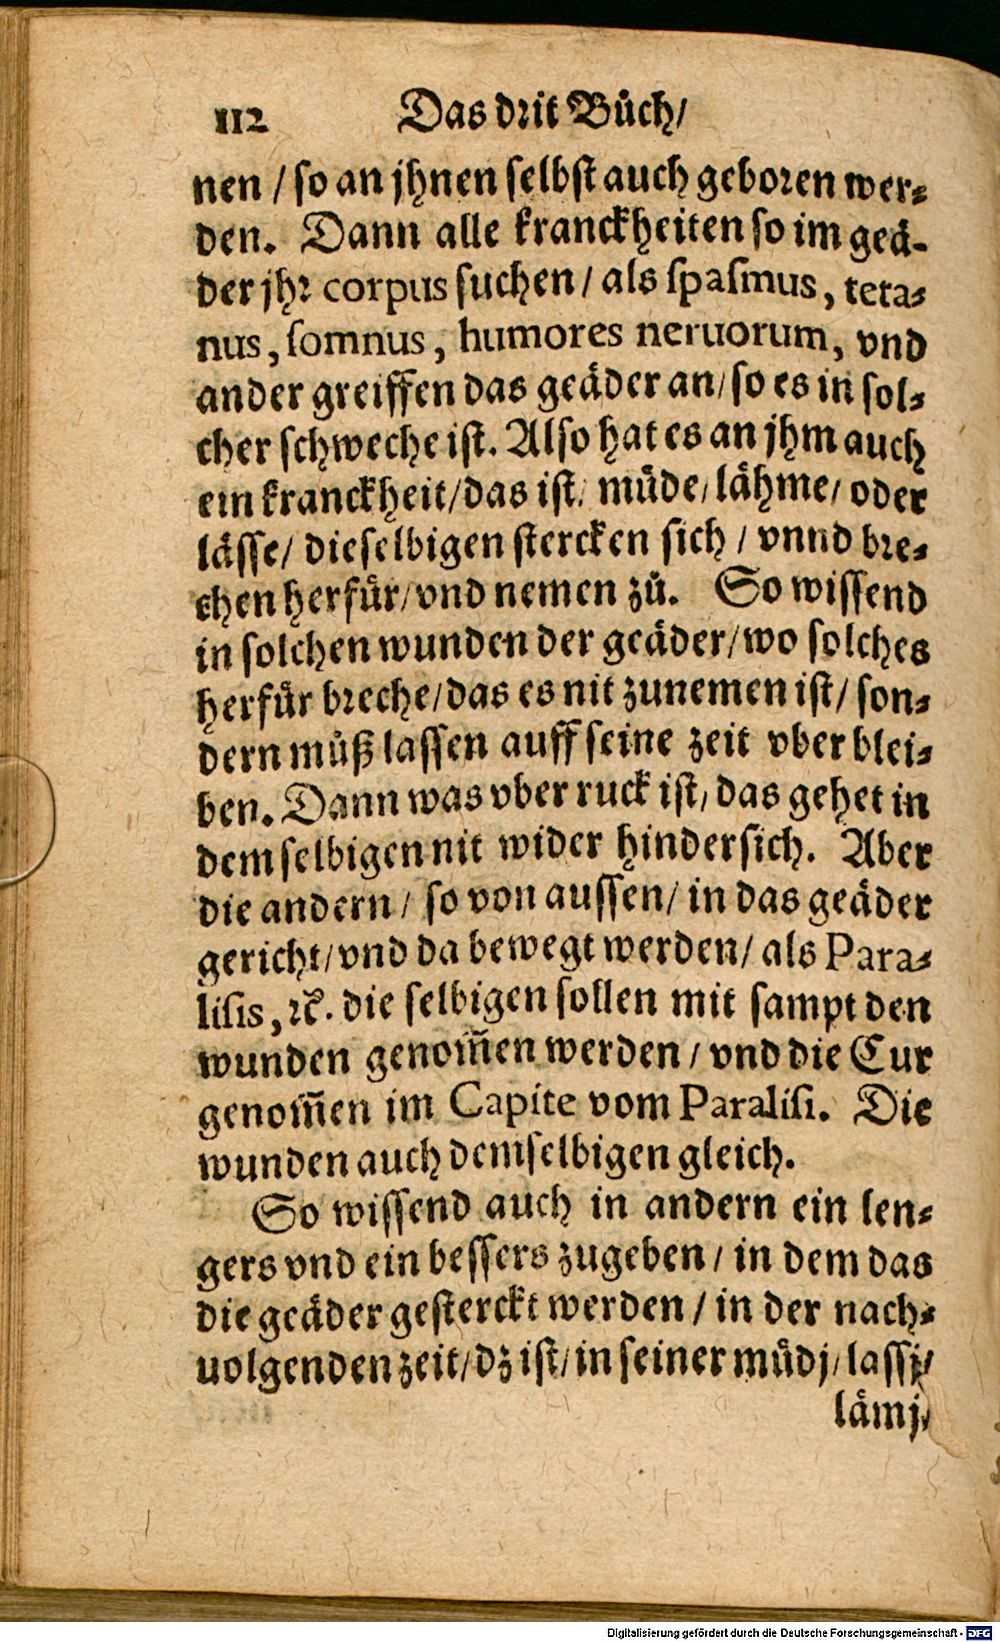 112 Das drit Bůch/
nen / so an jhnen selbst auch geboren wer⸗
den. Dann alle kranckheiten so im geä-
der jhr corpus suchen / als spasmus, teta⸗
nus, somnus, humores neruorum, vnd
ander greiffen das geäder an/ so es in sol⸗
cher schweche ist. Also hat es an jhm auch
ein kranckheit/das ist/ müde/ lähme/ oder
lässe/ dieselbigen stercken sich / vnnd bre⸗
chen herfür/ vnd nemen zů. So wissend
in solchen wunden der geäder/wo solches
herfür breche/das es nit zunemen ist/ son⸗
dern můß lassen auff seine zeit vber blei⸗
ben. Dann was vber ruck ist, das gehet in
dem selbigen nit wider hindersich. Aber
die andern / so von aussen/ in das geäder
gericht/vnd da bewegt werden/ als Para⸗
lisis, ꝛc. die selbigen sollen mit sampt den
wunden genom̃en werden / vnd die Cur
genom̃en im Capite vom Paralisi. Die
wunden auch demselbigen gleich.
So wissend auch in andern ein len⸗
gers vnd ein bessers zugeben / in dem das
die geäder gesterckt werden / in der nach⸗
uolgenden zeit/dz ist/in seiner müdj/ lassj/
lämj/
Digitalisierung gefördert durch die Deutsche Forschungsgemeinschaft - DFG